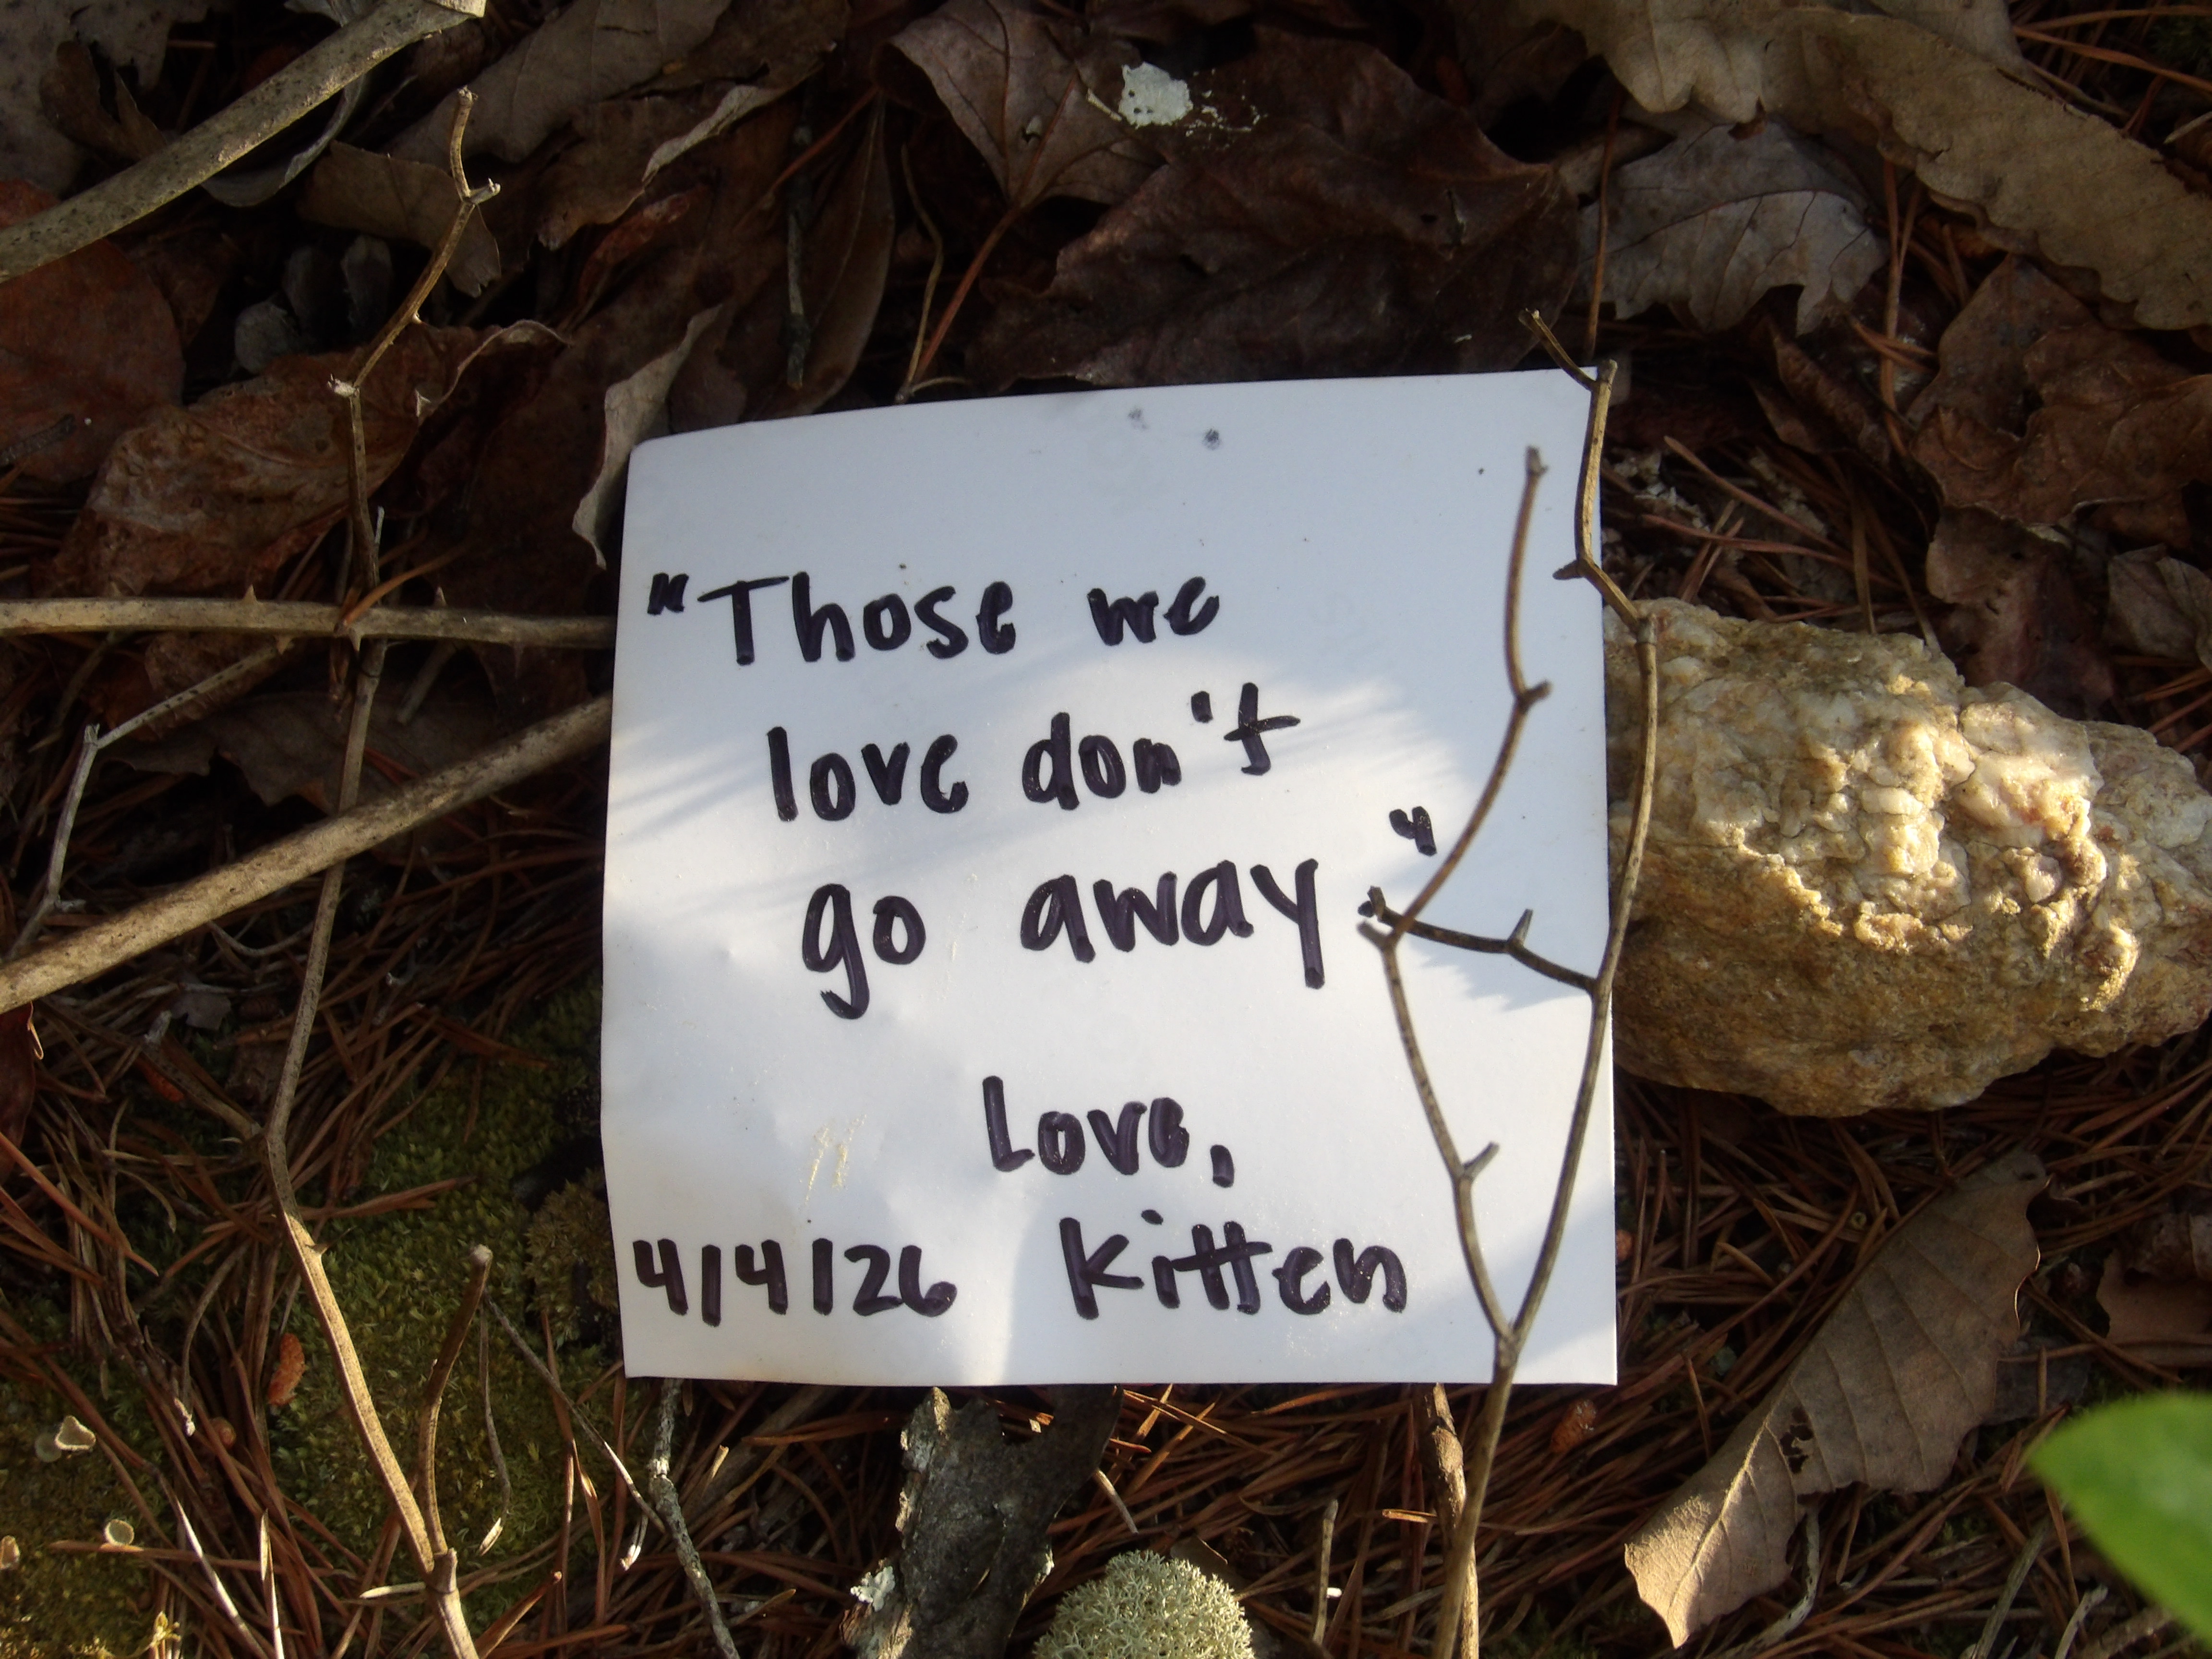 "Those we
love don't
go away."
Love,
4/4/26 Kitten